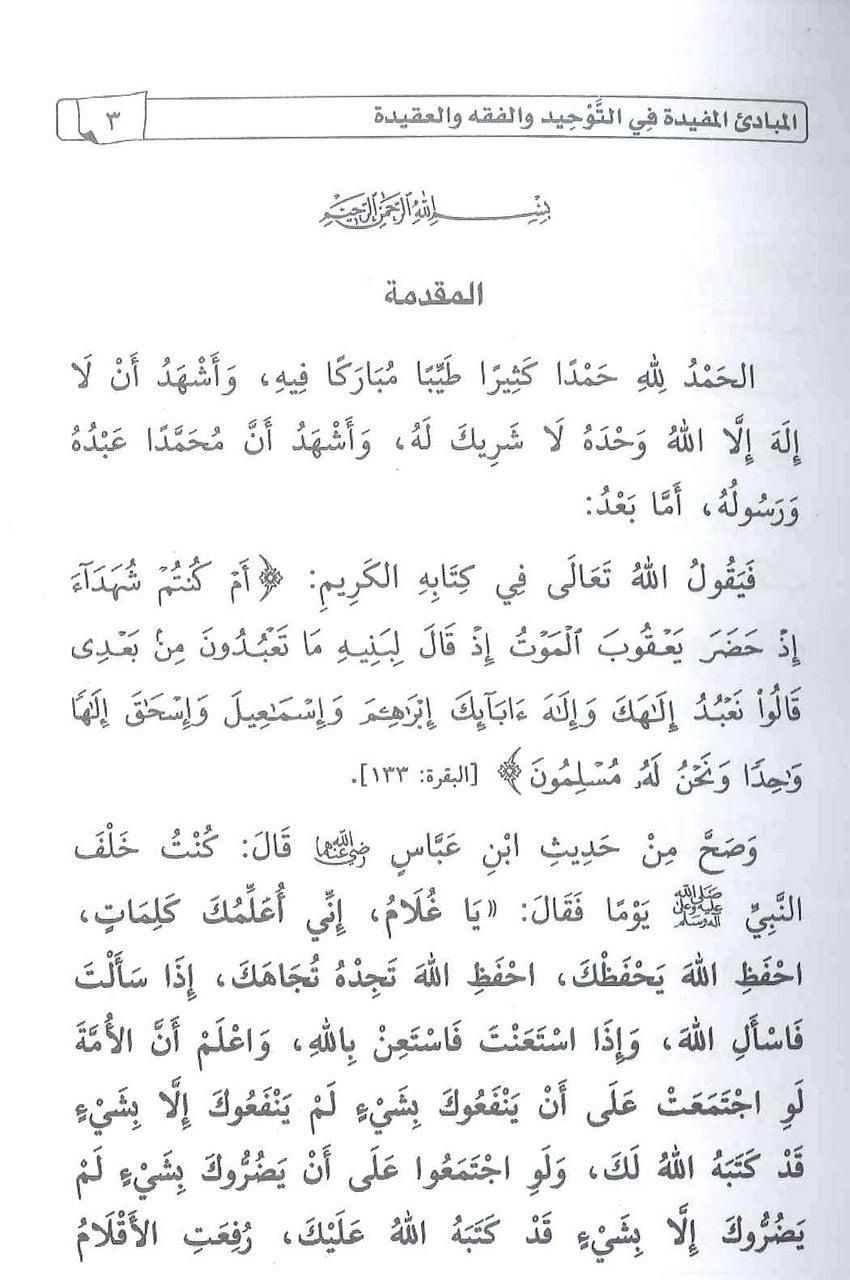 المبادئ المفيدة فِي التَّوْحِيد والفقه والعقيدة ٣
بِسْمِ اللهِ الرَّحْمَنِ الرَّحِيمِ
المقدمة
الحَمْدُ لِلهِ حَمْدًا كَثِيرًا طَيِّبًا مُبَارَكًا فِيهِ، وَأَشْهَدُ أَنْ لَا
إِلَهَ إِلَّا اللهُ وَحْدَهُ لَا شَرِيكَ لَهُ، وَأَشْهَدُ أَنَّ مُحَمَّدًا عَبْدُهُ
وَرَسُولُهُ، أَمَّا بَعْدُ:
فَيَقُولُ اللهُ تَعَالَى فِي كِتَابِهِ الكَرِيمِ: ﴿أَمۡ كُنتُمۡ شُهَدَآءَ
إِذۡ حَضَرَ يَعۡقُوبَ ٱلۡمَوۡتُ إِذۡ قَالَ لِبَنِيهِ مَا تَعۡبُدُونَ مِنۢ بَعۡدِى
قَالُواْ نَعۡبُدُ إِلَٰهَكَ وَإِلَٰهَ ءَابَآئِكَ إِبۡرَٰهِـۧمَ وَإِسۡمَٰعِيلَ وَإِسۡحَٰقَ إِلَٰهًا
وَٰحِدًا وَنَحۡنُ لَهُۥ مُسۡلِمُونَ﴾ [البقرة: ١٣٣].
وَصَحَّ مِنْ حَدِيثِ ابْنِ عَبَّاسٍ رضي الله عنهما قَالَ: كُنْتُ خَلْفَ
النَّبِيِّ صلى الله عليه وعلى آله وسلم يَوْمًا فَقَالَ: «يَا غُلَامُ، إِنِّي أُعَلِّمُكَ كَلِمَاتٍ،
احْفَظِ اللهَ يَحْفَظْكَ، احْفَظِ اللهَ تَجِدْهُ تُجَاهَكَ، إِذَا سَأَلْتَ
فَاسْأَلِ اللهَ، وَإِذَا اسْتَعَنْتَ فَاسْتَعِنْ بِاللهِ، وَاعْلَمْ أَنَّ الأُمَّةَ
لَوِ اجْتَمَعَتْ عَلَى أَنْ يَنْفَعُوكَ بِشَيْءٍ لَمْ يَنْفَعُوكَ إِلَّا بِشَيْءٍ
قَدْ كَتَبَهُ اللهُ لَكَ، وَلَوِ اجْتَمَعُوا عَلَى أَنْ يَضُرُّوكَ بِشَيْءٍ لَمْ
يَضُرُّوكَ إِلَّا بِشَيْءٍ قَدْ كَتَبَهُ اللهُ عَلَيْكَ، رُفِعَتِ الأَقْلَامُ